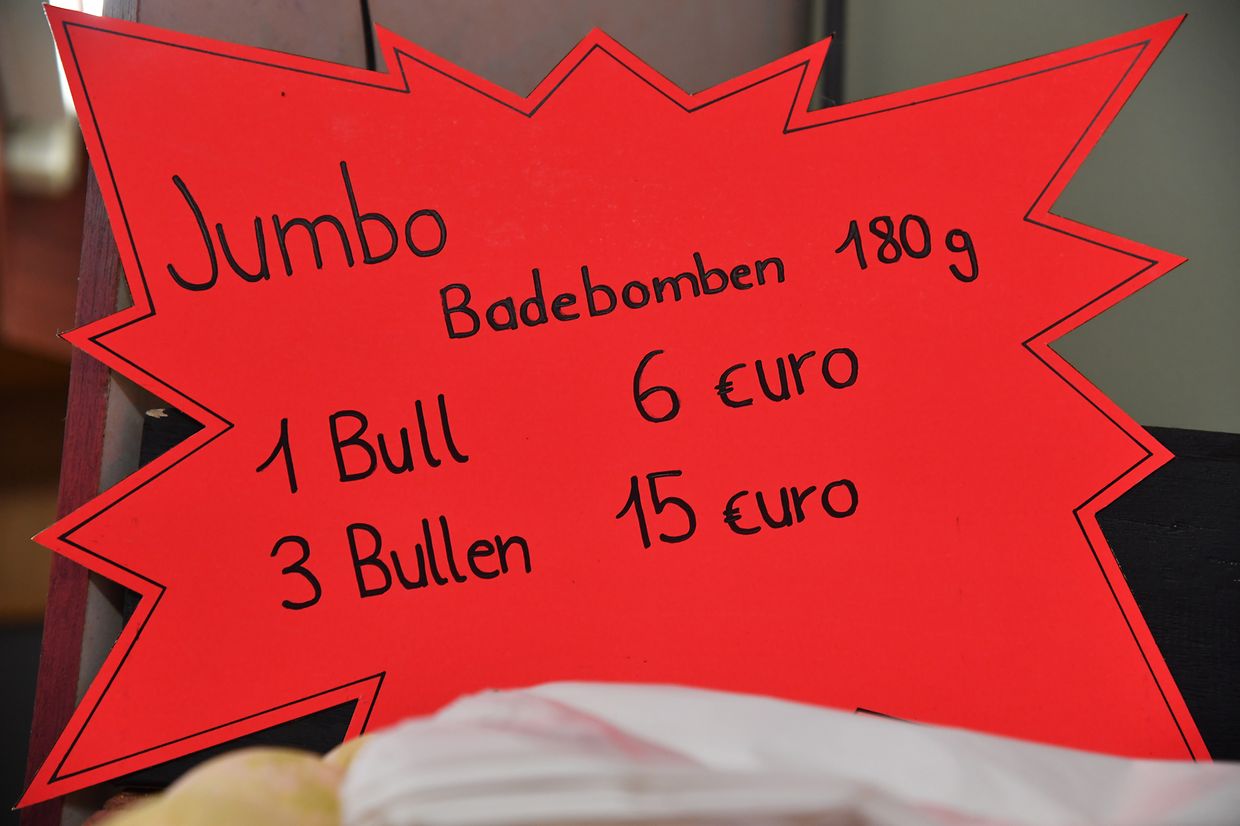 Jumbo
Badebomben 180 g
1 Bull 6 €uro
3 Bullen 15 €uro